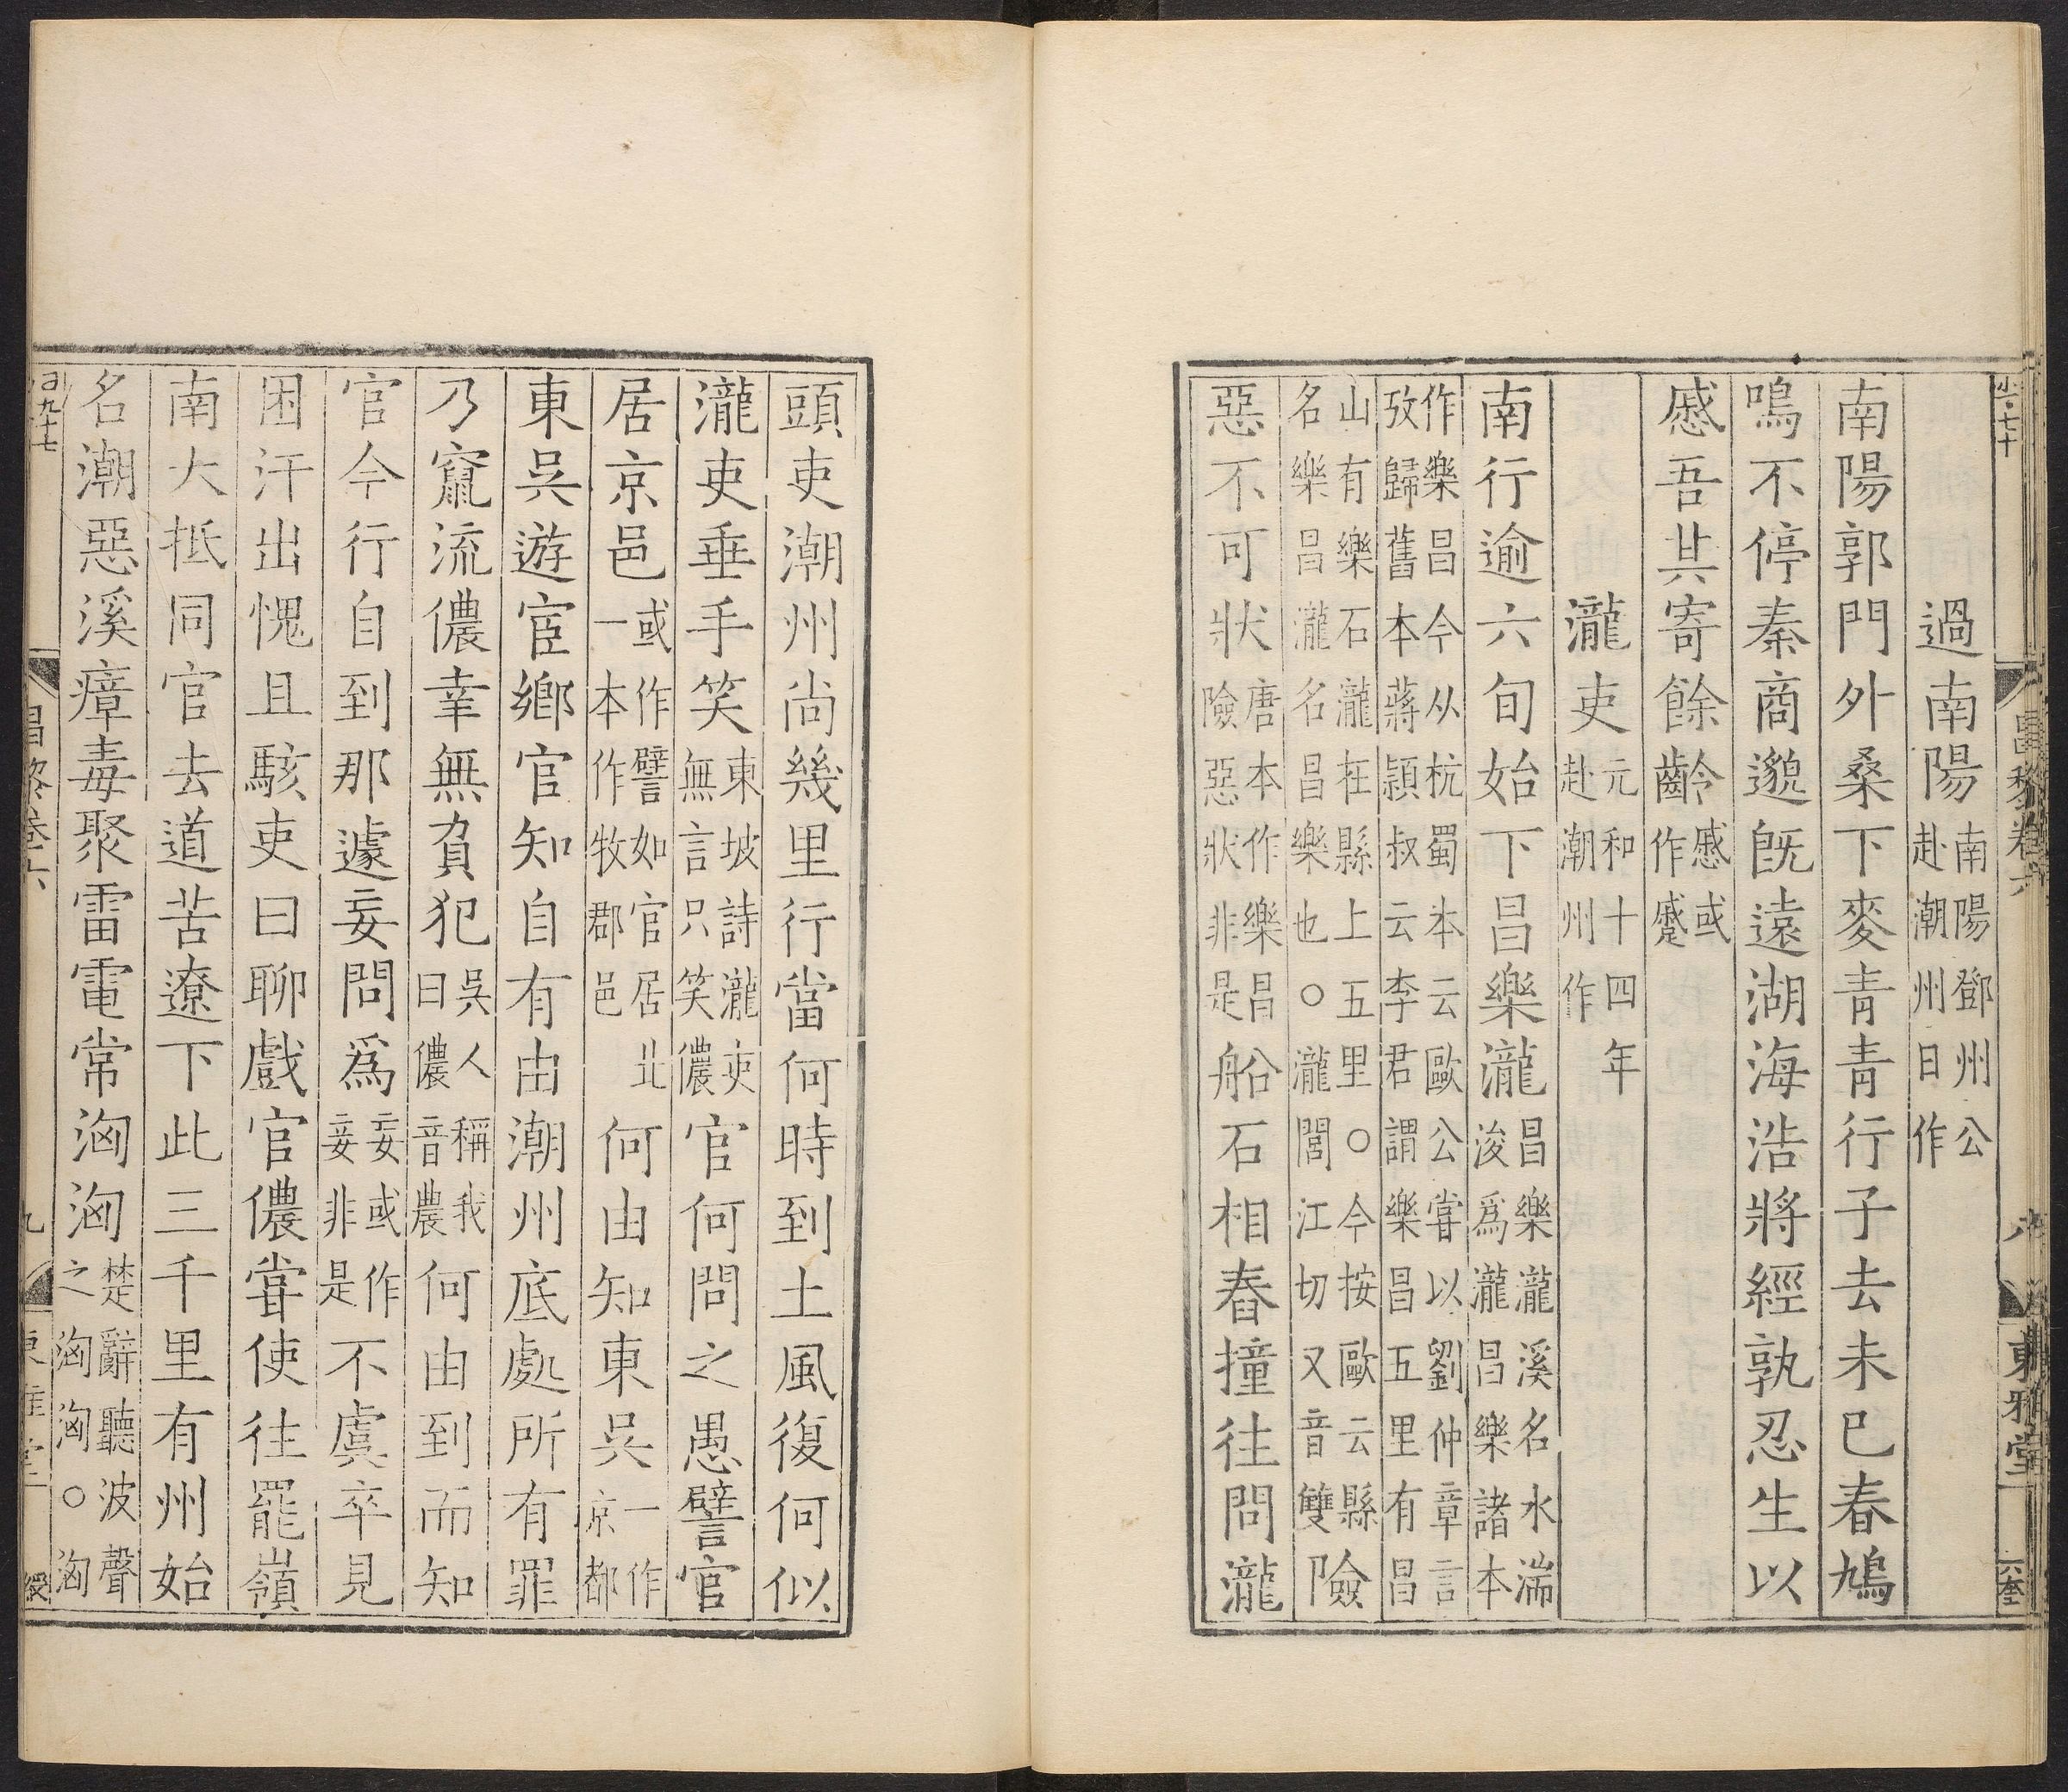 過南陽南陽鄧州公赴潮州日作
南陽郭門外桑下麥青青行子去未已春鳩
鳴不停秦商邈旣遠湖海浩將經孰忍生以
慼吾其寄餘齡慼或作蹙
瀧吏元和十四年赴潮州作
南行逾六旬始下昌樂瀧昌樂瀧溪名水湍浚爲瀧昌樂諸本
作樂昌今从杭蜀本云歐公嘗以劉仲章言攷歸舊本蔣頴叔云李君謂樂昌五里有昌
山有樂石瀧在縣上五里○今按歐云縣名樂昌瀧名昌樂也○瀧閭江切又音雙險
惡不可狀唐本作樂昌險惡狀非是船石相舂撞往問瀧
頭吏潮州尚幾里行當何時到土風復何似
瀧吏垂手笑東坡詩瀧吏無言只笑儂官何問之愚譬官
居京邑或作譬如官居北一本作牧郡邑何由知東吳一作京都
東吳遊宦鄉官知自有由潮州底處所有罪
乃竄流儂幸無負犯吳人稱我曰儂音農何由到而知
官今行自到那遽妄問爲妄或作妾非是不虞卒見
困汗出愧且駭吏曰聊戲官儂嘗使往罷嶺
南大抵同官去道苦遼下此三千里有州始
名潮惡溪瘴毒聚雷電常洶洶楚辭聽波聲之洶洶○洶
昌黎卷六
東雅堂
昌黎卷六
九